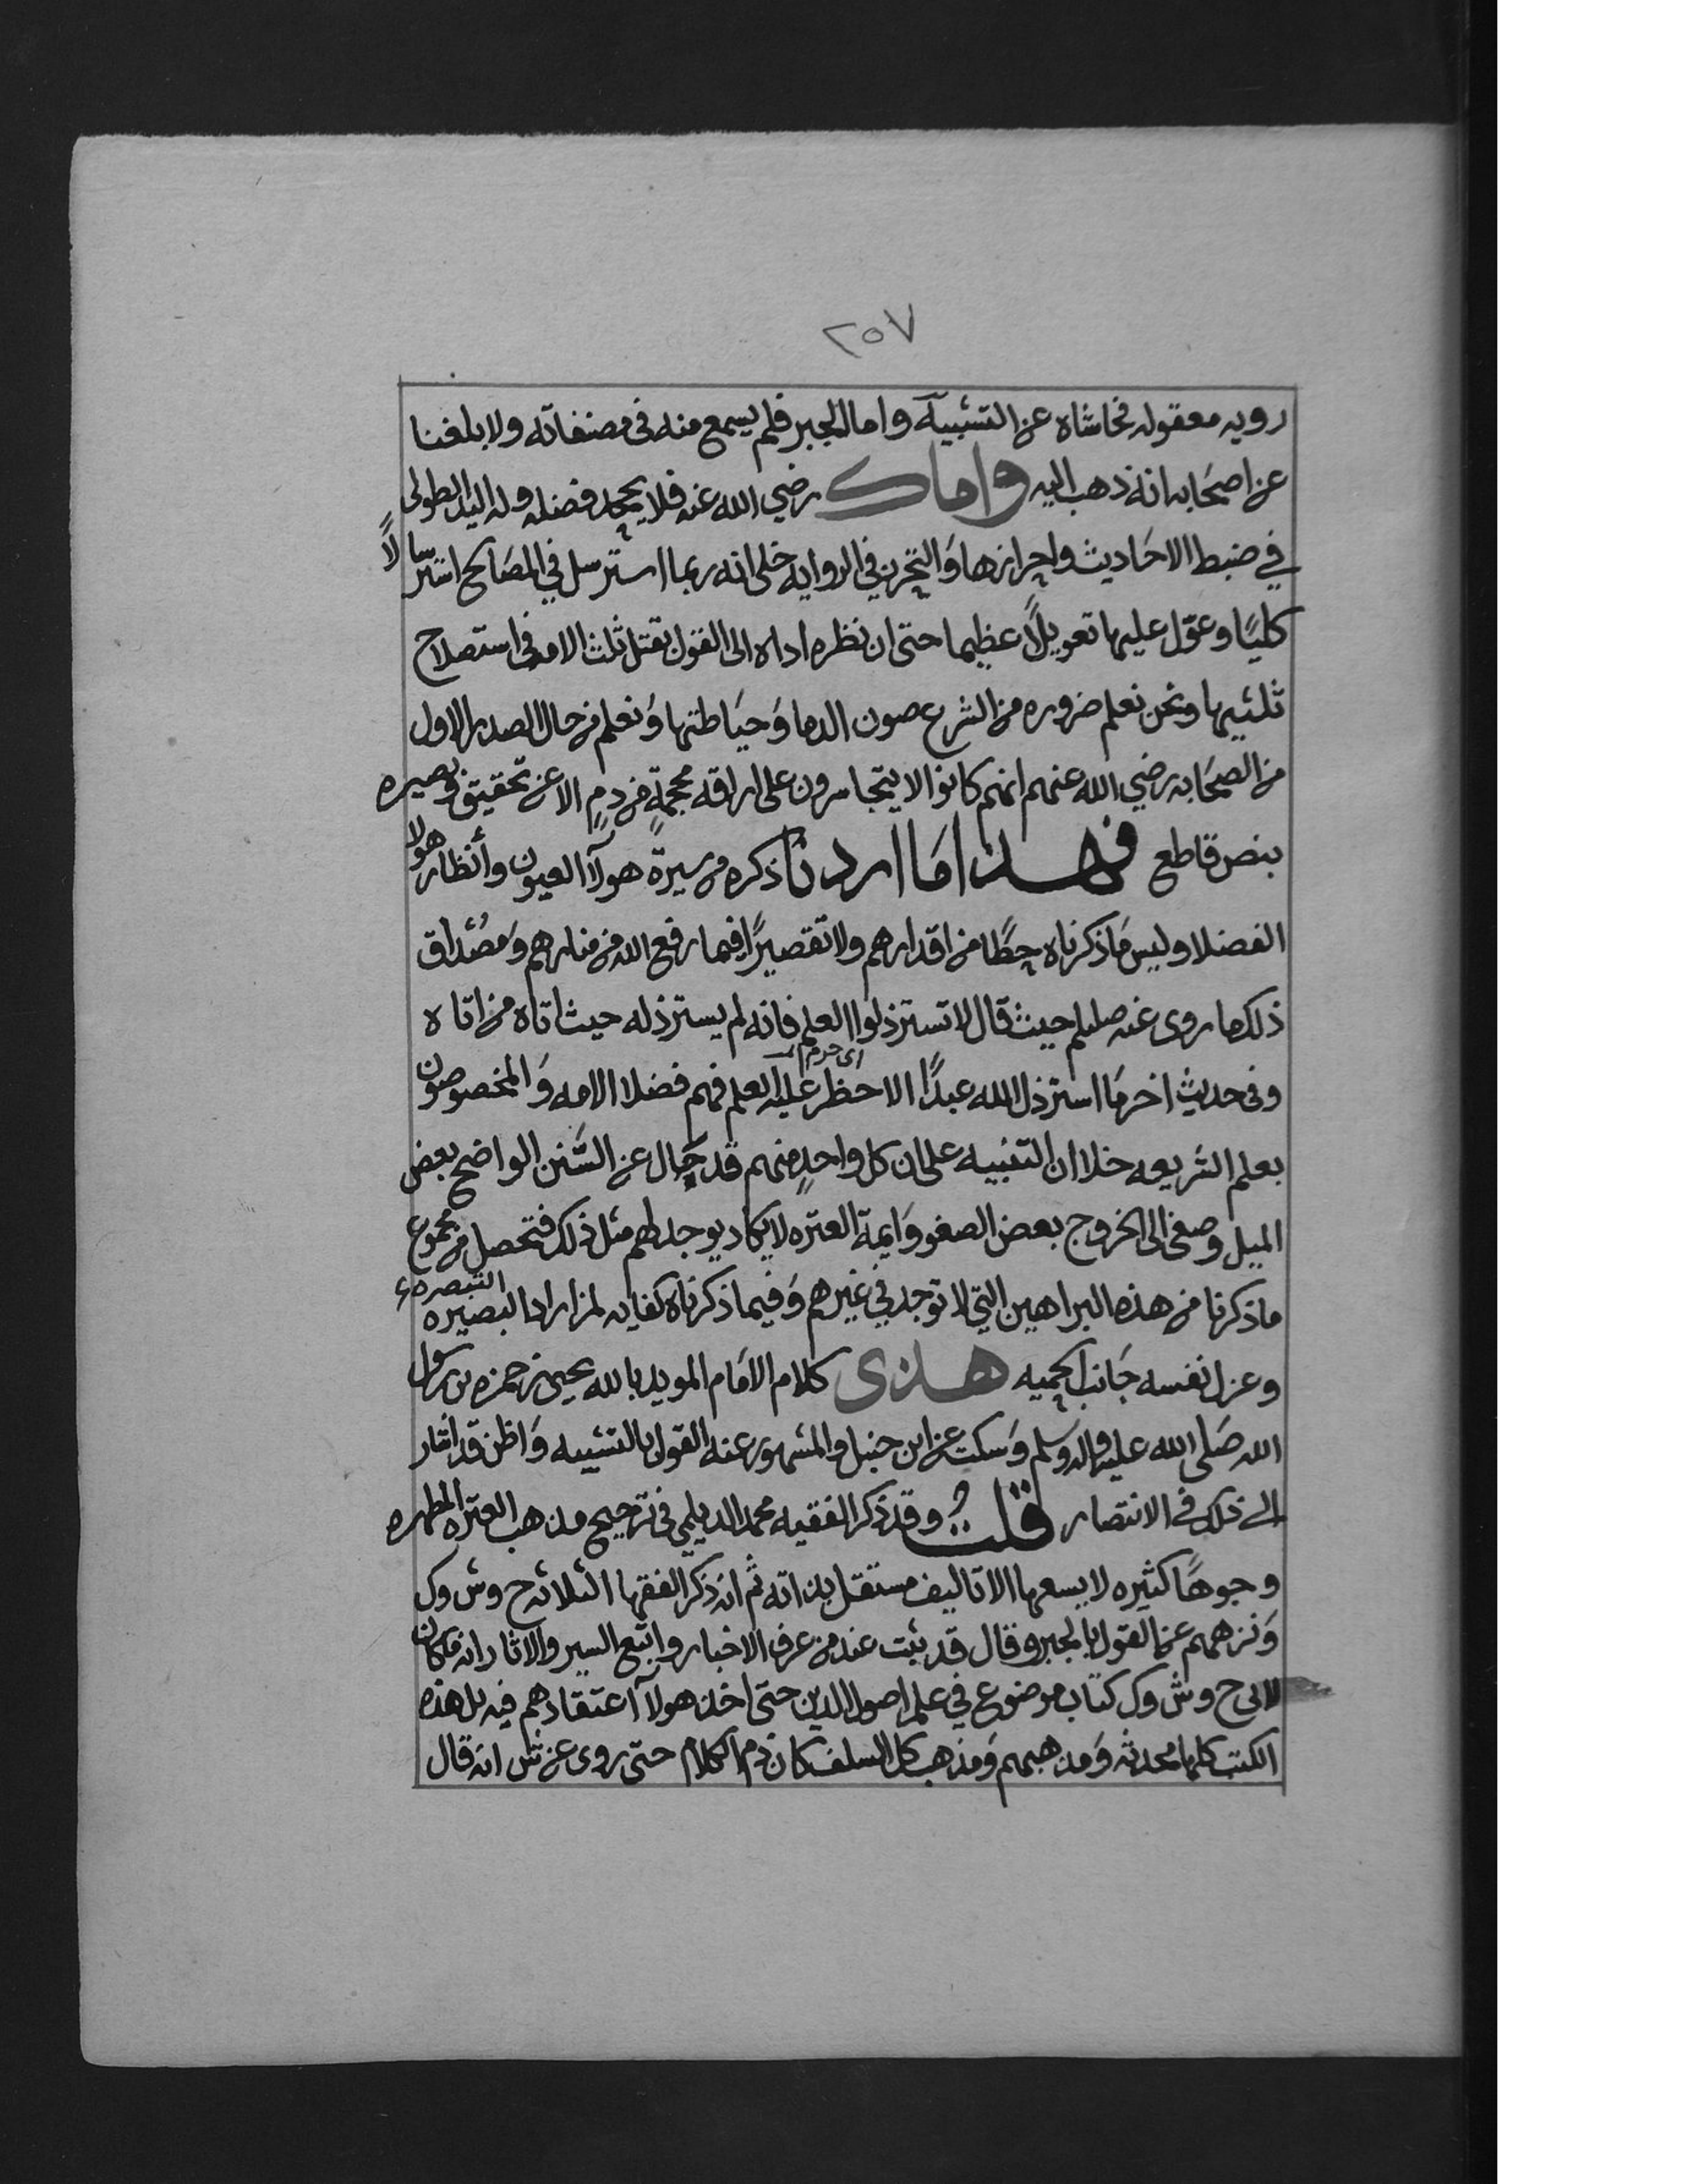 ٢٥٧
رويه معقوله فحاشاه عن التشبيه واما الجبر فلم يسمع منه فى مصنفاته ولا بلغنا
عن اصحابه انه ذهب اليه واماك رضي الله عنه فلا يجحد فضله وله اليد الطولى
في ضبط الاحاديث واحرازها والتحرز في الروايه خلى انه ربما استرسل في المصالح استرسالاً
كليًا وعوّل عليها تعويلاً عظيما حتى ان نظره اداه الى القول بقتل ثلث الامه فى استصلاح
ثلثيها ونحن نعلم ضروره من الشرع صون الدما وَحيَاطتها وَنعلم من حال الصدر الاول
من الصحابه رضي الله عنهم انهم كانوا لا يتجاسرون على اراقه محجمةٍ من دمٍ الا عن تحقيق وبصيره
بنص قاطع فهذا مَا اردنَا ذكره من سيرة هولآ العيون وأنظار هولا
الفضلا وليس مَا ذكرناه حطًا من اقدارهم ولا تقصيرًا فيما رفع الله من منارهم وَمصُداق
ذلك ما روى عنه صلىلم حيث قال لا تسترذلوا العلم فانه لم يسترذله حيث اتاه من اتاه
اى حرم
وفى حديث اخر مَا استرذل الله عبدًا الا حظر عليه العلم فهم فضلا الامه وَالمخصوصون
بعلم الشريعه خلا ان التنبيه على ان كل واحدٍ منهم قد حَال عن السَّنن الواضح بعض
الميل وصغى الى الخروج بعض الصغو وَايمة العتره لا يكاد يوجد لهم مثل ذلك فتحصل من مجموع
ماذكرنا من هذه البراهين التي لا توجد في غيرهم وَفيما ذكرناه كفايه لمن اراد البصيره
التبصره
وعزل نفسه جَانب الحميه هذى كلام الامَام المويد بالله يحيى بن حمزه بن رسول
الله صَلى الله عليه واله وسلم وَسكت عن ابن حنبل والمشهور عنه القول بالتشبيه وَاظن قد اشار
الى ذلك في الانتصار قلتُ وقد ذكر الفقيه محمد الديلمي فى ترجيح مذهب العتره المطهره
وجوهًا كثيره لا يسعها الا تاليف مستقل بذاته ثم انه ذكر الفقها الثلاثه ح وش وك
وَنزههم عن القول بالجبر وقال قد ثبت عند من عرف الاخبار واتبع السير والاثار انه ما كان
لابى ح وش وك كتاب موضوع في علم اصول الدين حتى اخذ هولآ اعتقادهم فيه بل هذه
الكتب كلها محدثه وَمذهبهم وَمذهب كل السلف كان ذم الكلام حتى روى عن ش انه قال